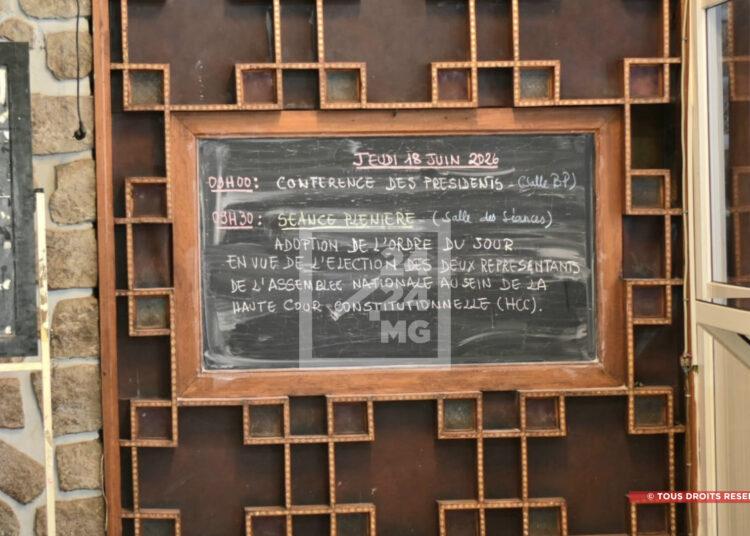 JEUDI 18 JUIN 2026
09H00: CONFERENCE DES PRESIDENTS - (Salle BP)
09H30: SEANCE PLENIERE - (Salle des Séances)
ADOPTION DE L'ORDRE DU JOUR
EN VUE DE L'ELECTION DES DEUX REPRESENTANTS
DE L'ASSEMBLEE NATIONALE AU SEIN DE LA
HAUTE COUR CONSTITUTIONNELLE (HCC).
MG
© TOUS DROITS RESE